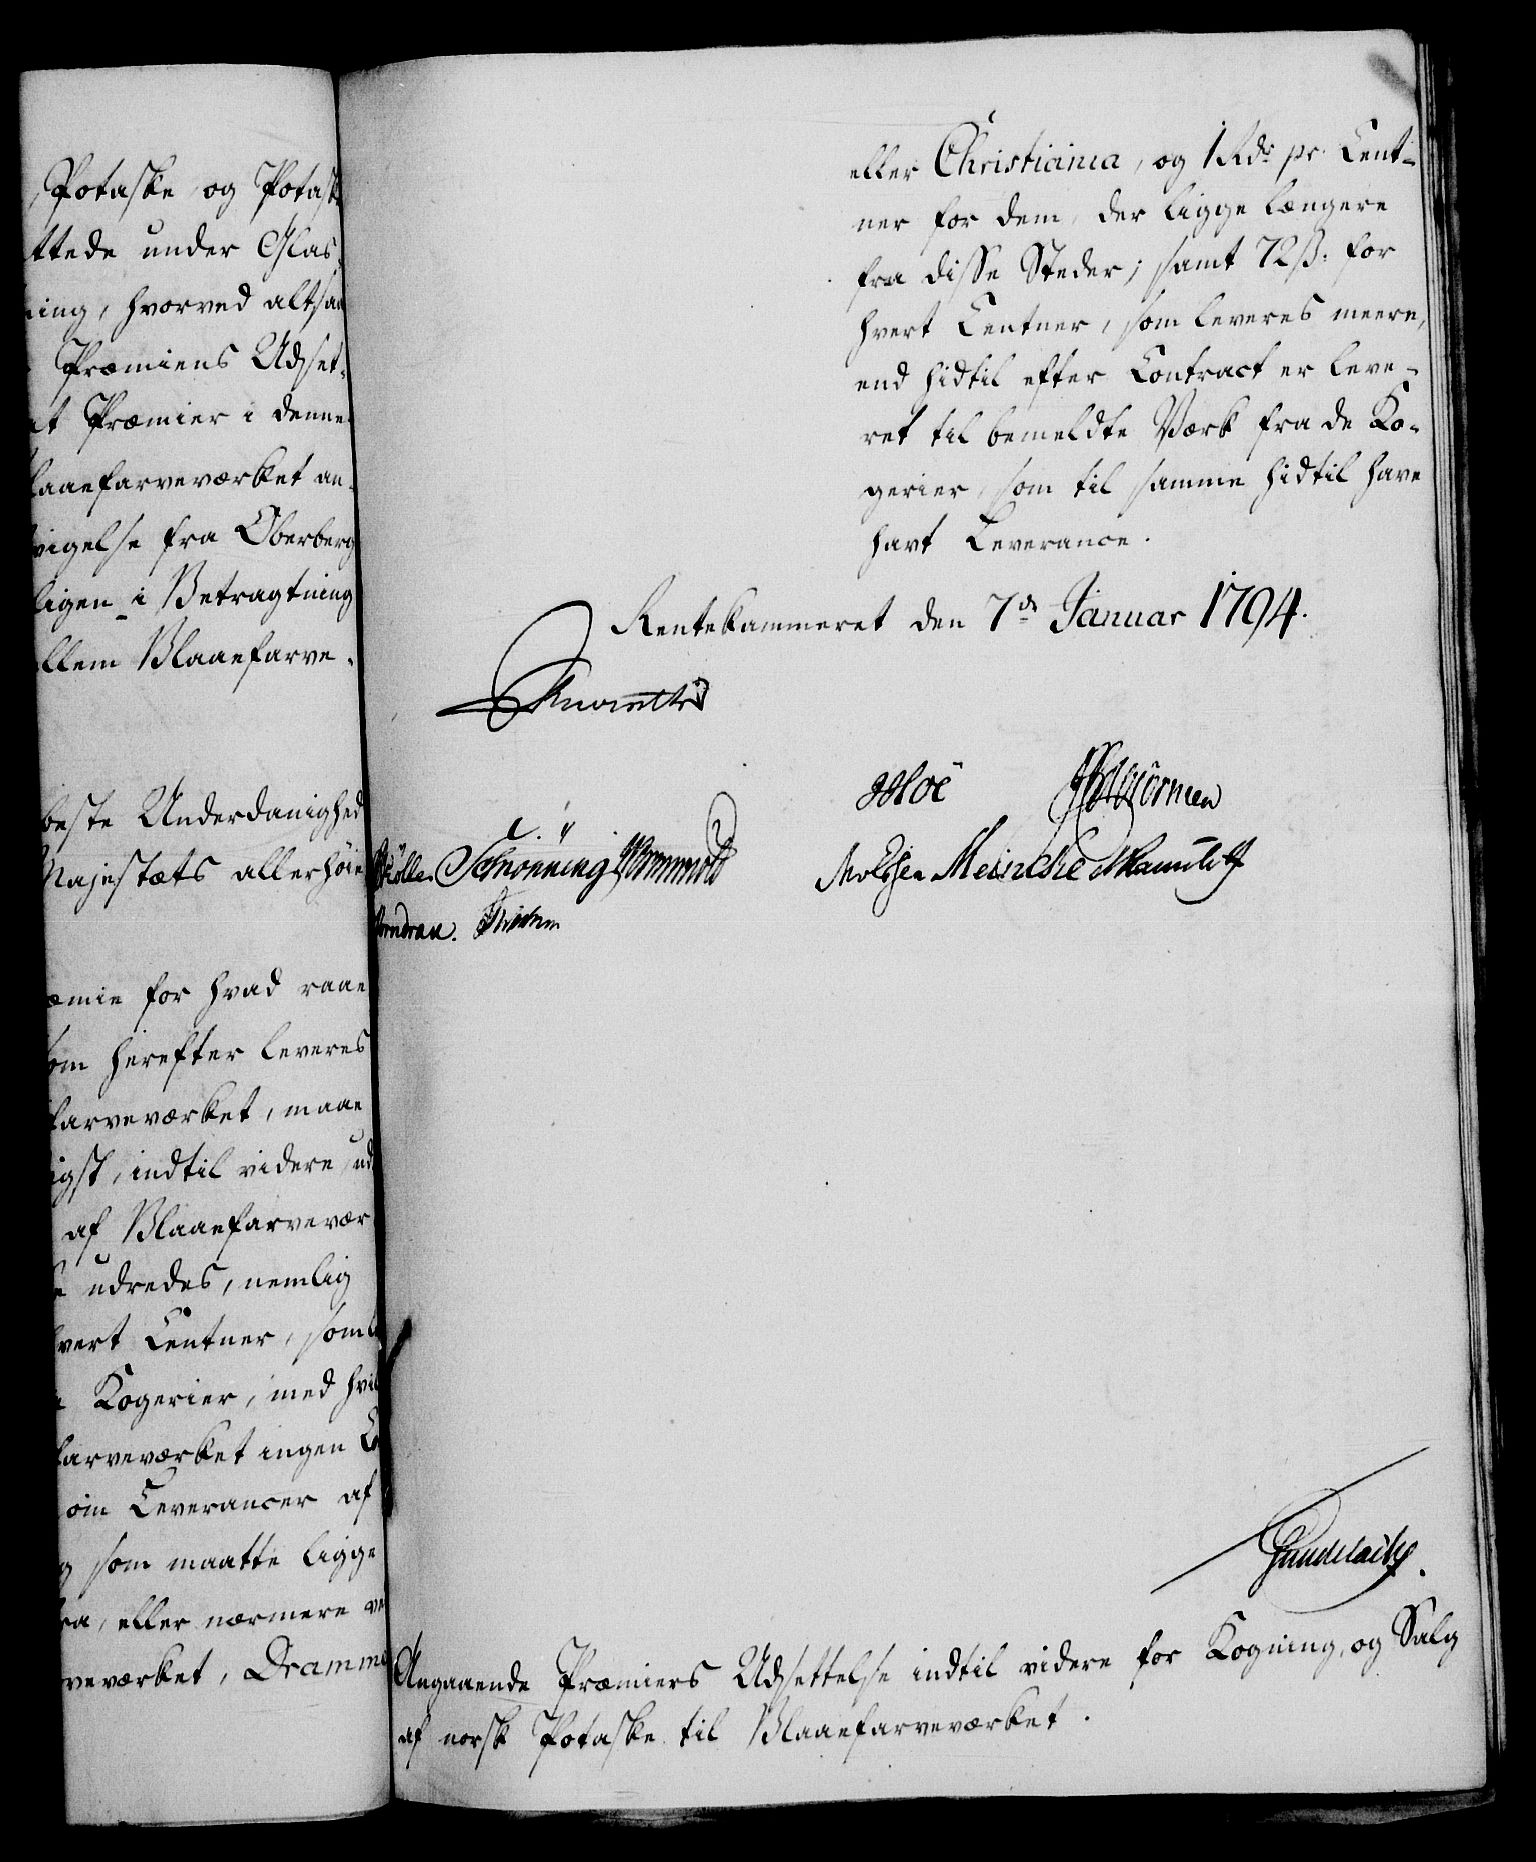 Potaske og Potask
ttede under Glas-
ing, hvorved altsaa
Præmiens Udset-
Præmier i denne
laaefarveværket an-
vigelse fra Oberberg
ligen i Betragtning
llem Blaaefarve-
beste Underdanighed
Majestæts allerhøie
æmie for hvad raae
om herefter leveres
farveværket, maae
igst, indtil videre, ud
af Blaaefarvevær
udredes, nemlig
vert Centner, som
Kogerier, med hvil
farveværket ingen
om Leverancer af
g som maatte ligge
ra, eller nærmere ve
rveværket, Dramme
eller Christiania, og 1 Rdr pr. Cent-
ner for dem, der ligge længere
fra disse Steder; samt 72 ß. for
hvert Centner, som leveres meere,
end hidtil efter Contract er leve-
ret til bemeldte Værk fra de Ko-
gerier, som til samme hidtil have
havt Leverance.
Rentekammeret den 7de Januar 1794.
Schønning
Meincke
Gundelach.
Angaaende Præmiers Udsettelse indtil videre for Kogning, og Salg
af norsk Potaske til Blaaefarveværket.